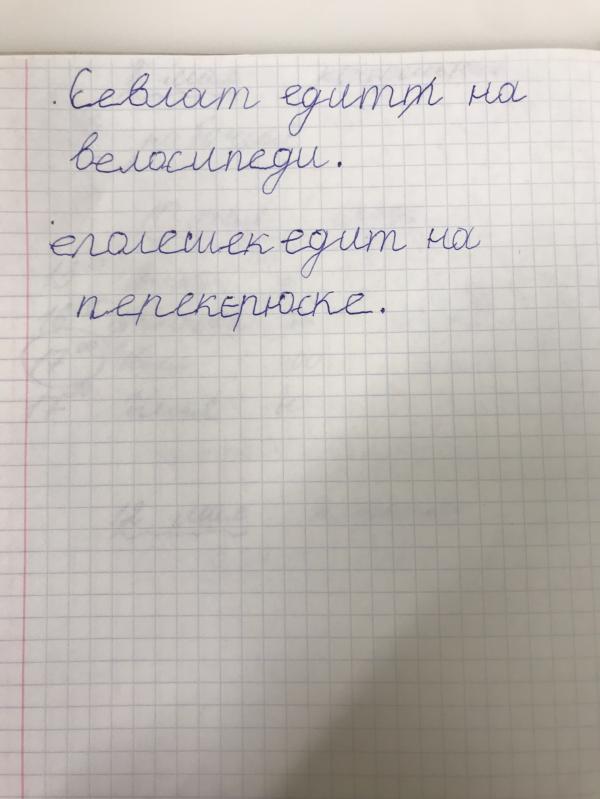 Еевлат едитт на
велосипеди.
еполешек едит на
перекерюске.